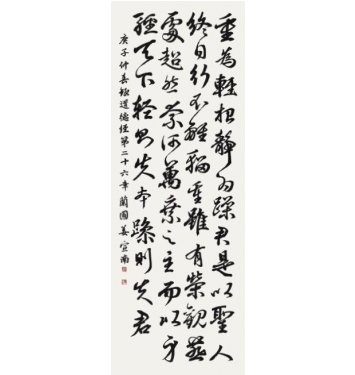 重為輕根靜為躁君是以聖人
終日行不離輜重雖有榮觀燕
處超然奈何萬乘之主而以身
輕天下輕則失本躁則失君
庚子仲春錄道德經第二十六章蘭園姜宣南